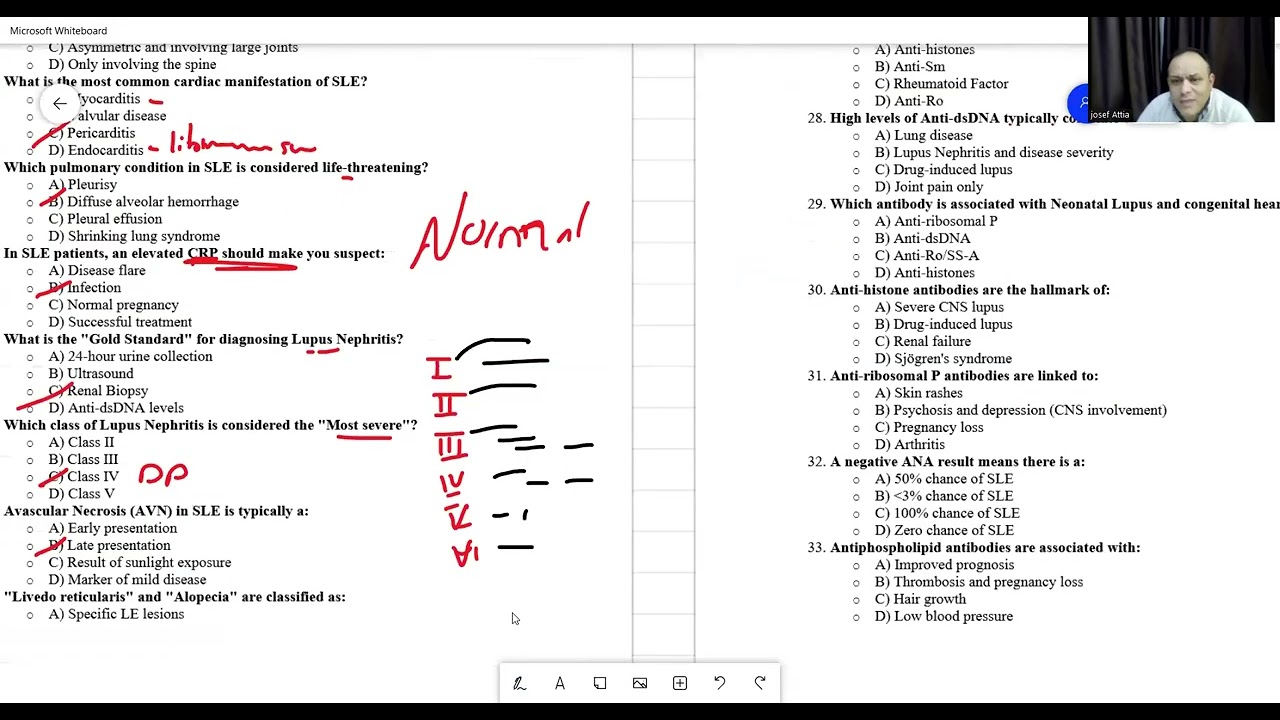 Microsoft Whiteboard
C) Asymmetric and involving large joints
D) Only involving the spine
What is the most common cardiac manifestation of SLE?
yocarditis
alvular disease
C) Pericarditis
D) Endocarditis
Which pulmonary condition in SLE is considered life-threatening?
A) Pleurisy
B) Diffuse alveolar hemorrhage
C) Pleural effusion
D) Shrinking lung syndrome
In SLE patients, an elevated CRP should make you suspect:
A) Disease flare
B) Infection
C) Normal pregnancy
D) Successful treatment
Normal
What is the "Gold Standard" for diagnosing Lupus Nephritis?
A) 24-hour urine collection
B) Ultrasound
C) Renal Biopsy
D) Anti-dsDNA levels
Which class of Lupus Nephritis is considered the "Most severe"?
A) Class II
B) Class III
C) Class IV
D) Class V
I
II
III
IV
V
VI
Avascular Necrosis (AVN) in SLE is typically a:
A) Early presentation
B) Late presentation
C) Result of sunlight exposure
D) Marker of mild disease
"Livedo reticularis" and "Alopecia" are classified as:
A) Specific LE lesions
A) Anti-histones
B) Anti-Sm
C) Rheumatoid Factor
D) Anti-Ro
josef Attia
28. High levels of Anti-dsDNA typically co
A) Lung disease
B) Lupus Nephritis and disease severity
C) Drug-induced lupus
D) Joint pain only
29. Which antibody is associated with Neonatal Lupus and congenital hear
A) Anti-ribosomal P
B) Anti-dsDNA
C) Anti-Ro/SS-A
D) Anti-histones
30. Anti-histone antibodies are the hallmark of:
A) Severe CNS lupus
B) Drug-induced lupus
C) Renal failure
D) Sjögren's syndrome
31. Anti-ribosomal P antibodies are linked to:
A) Skin rashes
B) Psychosis and depression (CNS involvement)
C) Pregnancy loss
D) Arthritis
32. A negative ANA result means there is a:
A) 50% chance of SLE
B) <3% chance of SLE
C) 100% chance of SLE
D) Zero chance of SLE
33. Antiphospholipid antibodies are associated with:
A) Improved prognosis
B) Thrombosis and pregnancy loss
C) Hair growth
D) Low blood pressure